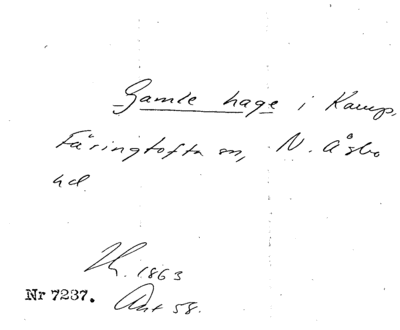 Gamle hage i Kamp,
Färingtofta sn, N. Åsbo
hd
1863
Nr 7237. Ant 58.